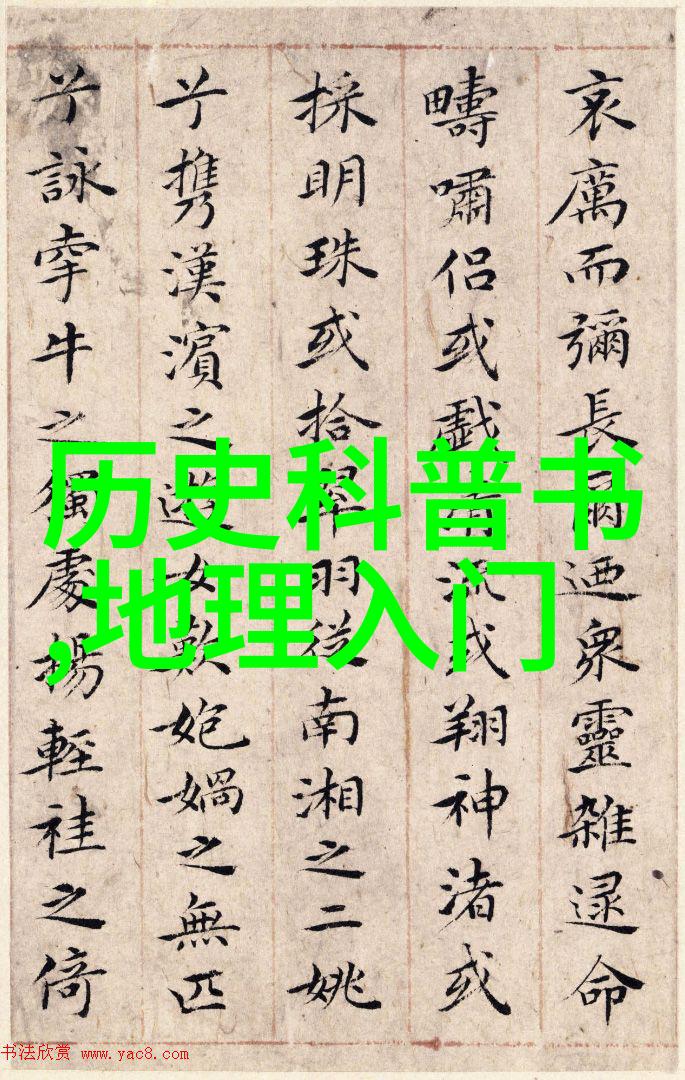 哀厲而彌長爾迺衆靈雜遝命
疇嘯侶或戲清流或翔神渚或
採明珠或拾翠羽從南湘之二姚
兮携漢濱之遊女歎媧之無匹
兮詠牽牛之獨處揚輕袿之倚
历史科普书
,地理入门
书法欣赏 www.yac8.com